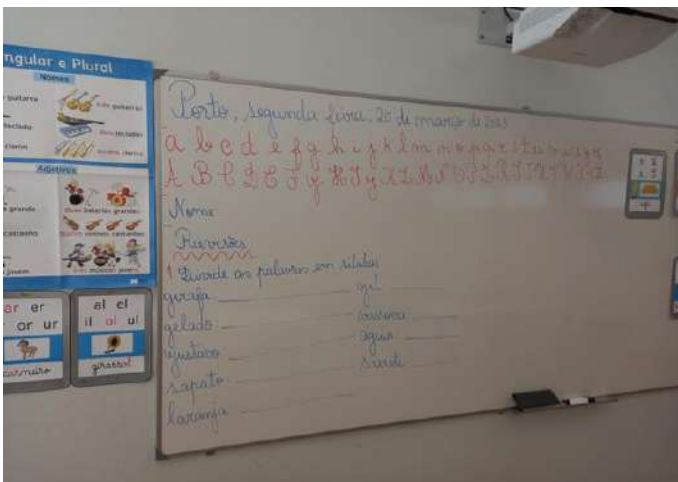 ngular e Plural
Nomes
guitarra
três guitarras
teclado
dois teclados
clarim
quatro clarins
Adjetivos
grande
duas baterias grandes
castanho
quatro violinos castanhos
jovem
três músicos jovens
ar er
or ur
carneiro
al el
il ol ul
girassol
Porto, segunda feira, 20 de março de 2023
a b c d e f g h i j k l m n o p q r s t u v w x y z
A B C D E F G H I J K L M N O P Q R S T U V W X Y Z
Nome
Revisões
1 Divide as palavras em sílabas
girafa
gelado
sapato
laranja
água